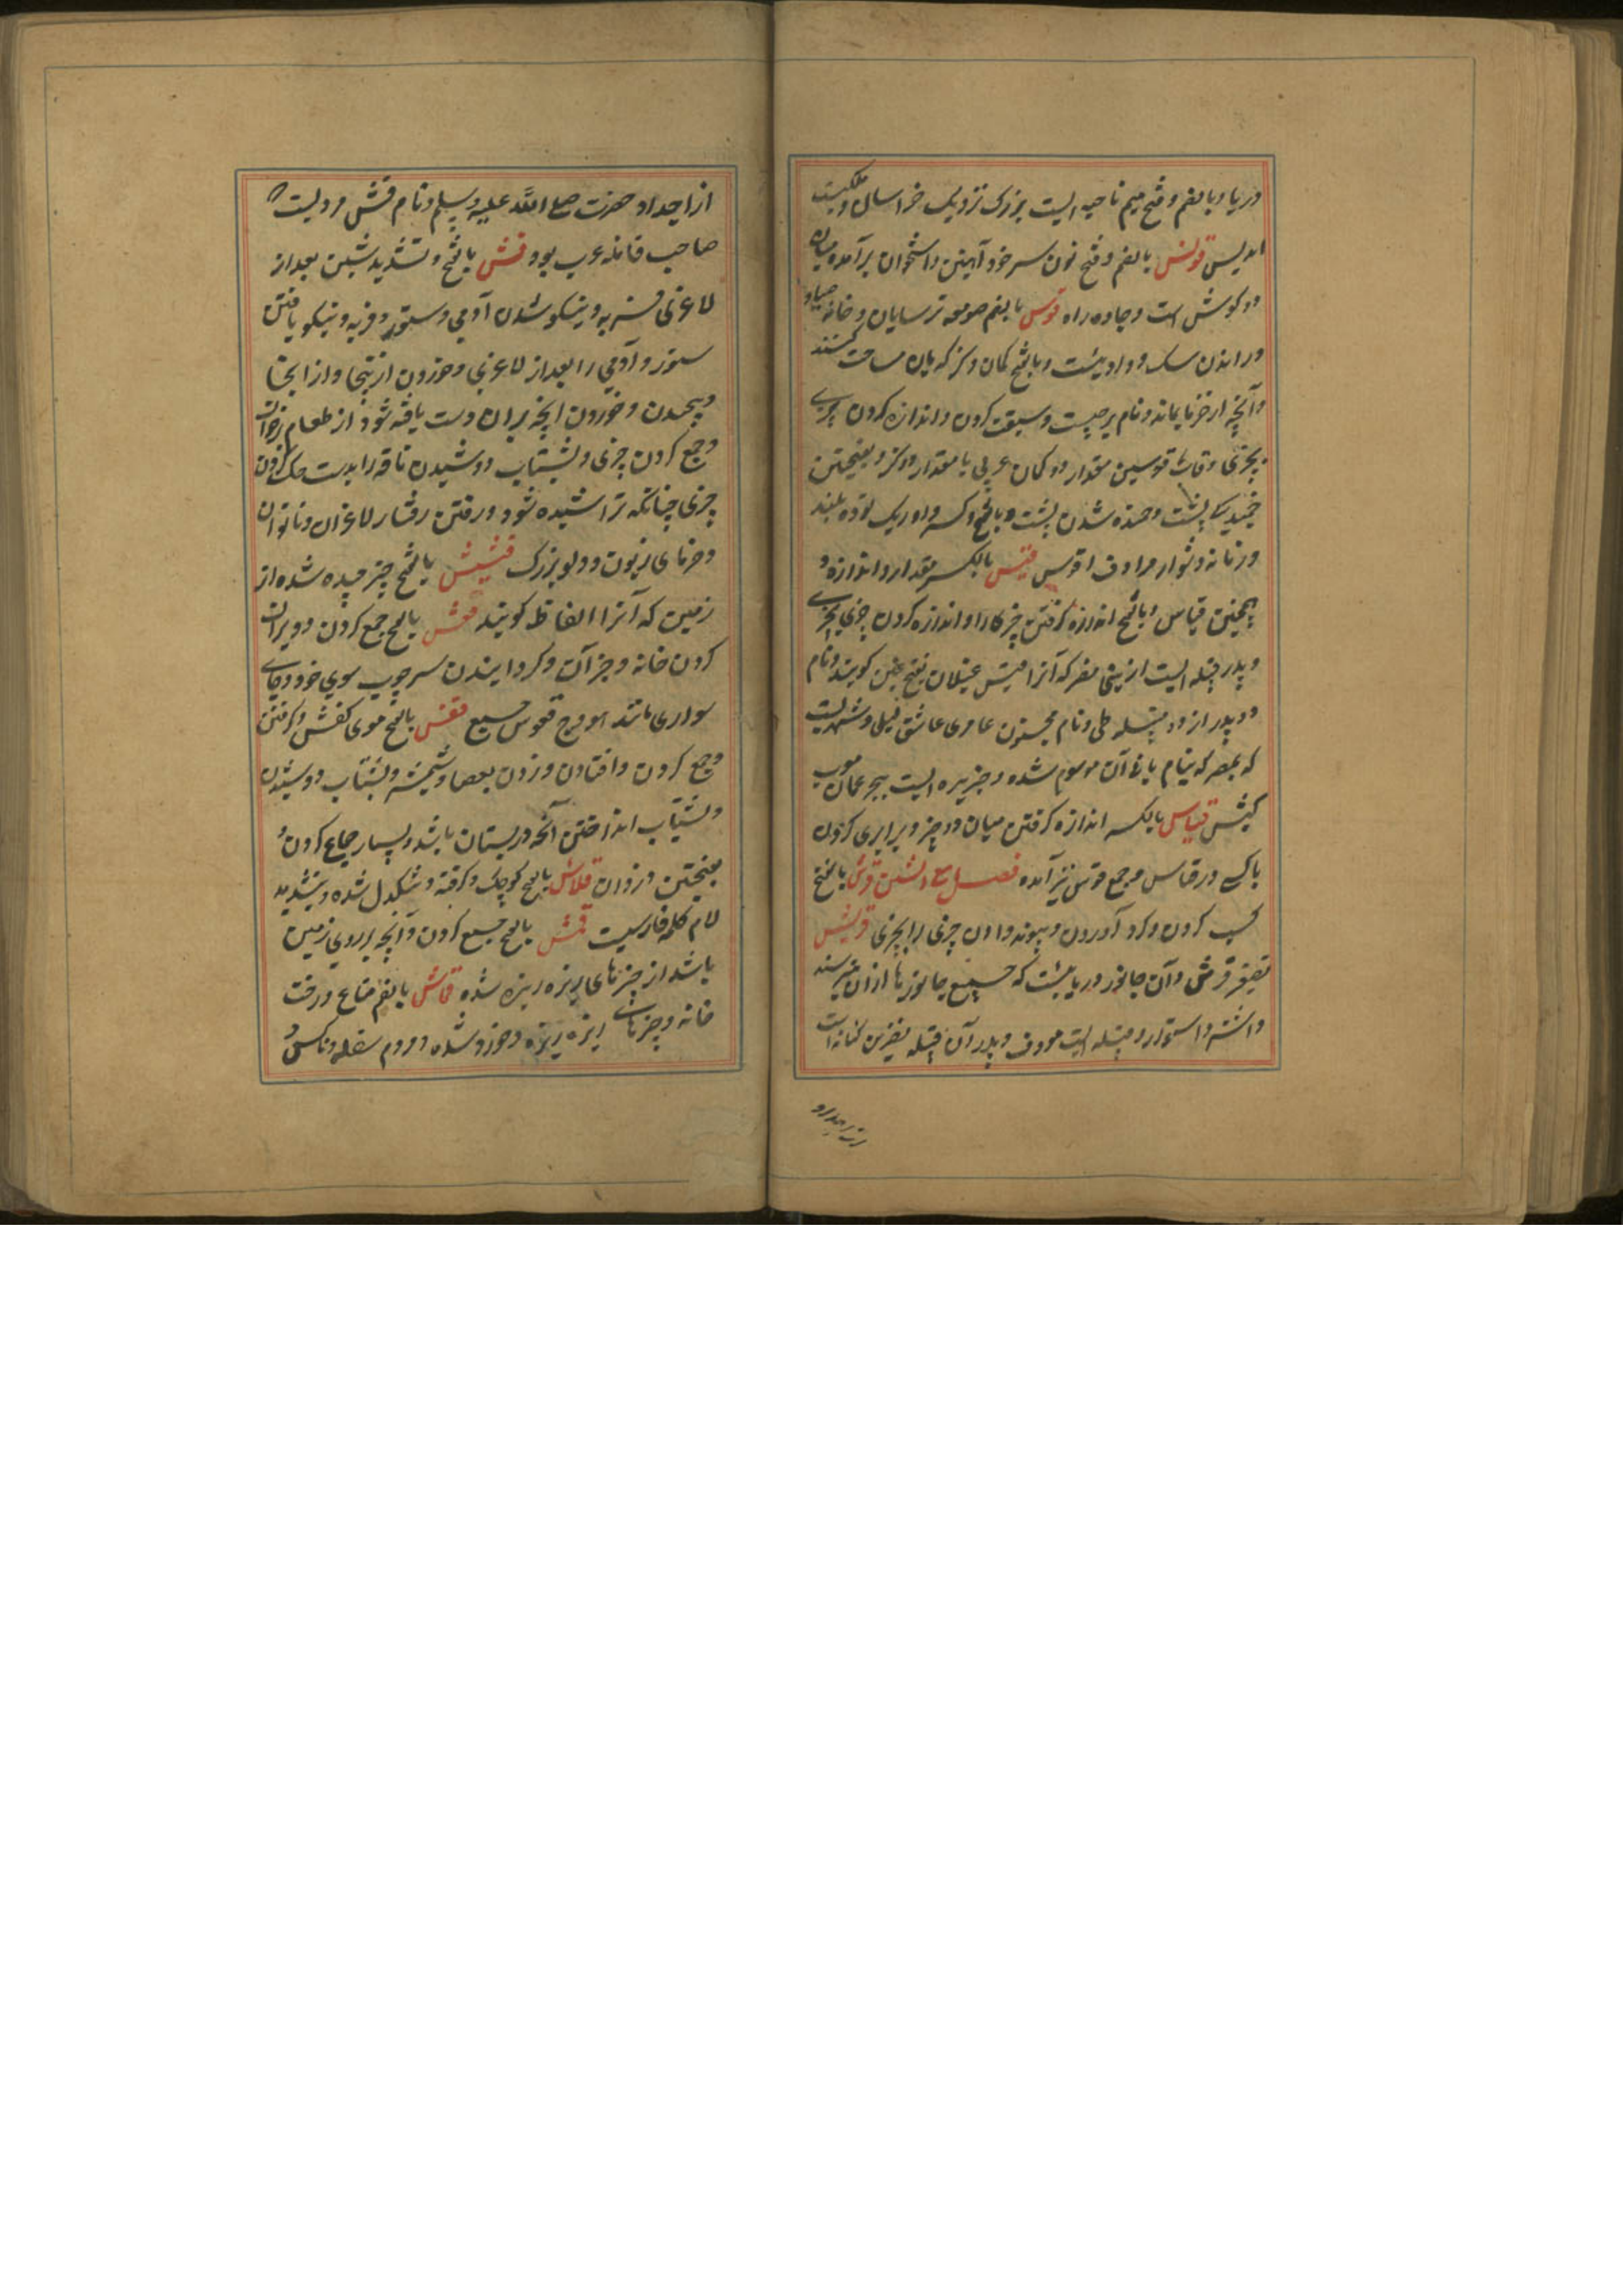 دریا و بالضم و فتح میم ناحیه ایست بزرک نزدیک خراسان و ملکیست
اندلس قونس بالضم و فتح نون سر خود آهنین و استخوان برآمده میان
دو کوش است و جاده راه قوس بالضم صومعه ترسایان و خانه صیاد
و راندن سک و وادیست و بالفتح کمان و کز که بآن مساحت کنند
و آنچه از خرما بماند و نام برجیست و سبقت کردن و اندازه کردن چیزی
بچیزی و قاب قوسین مقدار دو کمان عربی یا مقدار دو کز و بفتحتین
خمیدکی پشت و خمیده شدن پشت و بالفتح و کسر واو ریک توده بلند
و زمانه دشوار مرادف اقوس قیس بالکسر مقدار و اندازه و
همچنین قیاس و بالفتح اندازه کرفتن چیزها را و اندازه کردن چیزی بچیزی
و پدر قبیله ایست از بنی مضر که آنرا قیس عیلان بفتح عین کویند و نام
دو پدر از دو قبیله طی و نام مجنون عامری عاشق لیلی و شهریست
که بمصر که بنام بانی آن موسوم شده و جزیره ایست ببحر عمان معرب
کیش قیاس بالکسر اندازه کرفتن میان دو چیز و برابری کردن
با کسی در قیاس و جمع قوس نیز آمده فصل مع الشین قرش بالفتح
کسب کردن و کرد آوردن و پیوند دادن چیزی را بچیزی قریش
تصغیر قرش و آن جانور دریائیست که جمیع جانورها از آن میترسند
و اشتر استوار و قبیله ایست معروف و پدر آن قبیله نضر بن کنانه است
از اجداد حضرت صلی الله علیه وسلم و نام قش مردیست
صاحب قافله عرب بود قش بالفتح و تشدید شین بعد از
لاغری فربه و نیکو شدن آدمی و ستور و فربه و نیکو یافتن
ستور و آدمی را بعد از لاغری و خوردن از اینجا و از آنجا
و پیچیدن و خوردن آنچه بران دست یافته شود از طعام بر خوان
و جمع کردن چیزی و بشتاب دوشیدن ناقه را بدست حک کردن
چیزی چنانکه تراشیده شود و رفتن رفتار لاغران و ناتوان
و خرمای زبون و دلو بزرک قشیش بالفتح چیز چیده شده از
زمین که آنرا القاط کویند قعش بالفتح جمع کردن و ویران
کردن خانه و جز آن و کردانیدن سر چوب سوی خود و جای
سواری مانند هودج قعوش جمیع قفش بالفتح موی کفش و کرفتن
و جمع کردن و افتادن و زدن بعصا و شمشیر و بشتاب دوشیدن
و بشتاب انداختن آنچه در پستان باشد و بسیار جماع کردن و
بفتحتین دزدان قلاش بالفتح کوچک و کرفته و تنکدل شده و بتشدید
لام کلمه فارسیست قمش بالفتح جمع کردن و آنچه بر روی زمین
باشد از چیزهای ریزه ریزه شده قماش بالضم متاع و رخت
خانه و چیزهای ریزه ریزه و خورد شده و مردم سفله و ناکس و